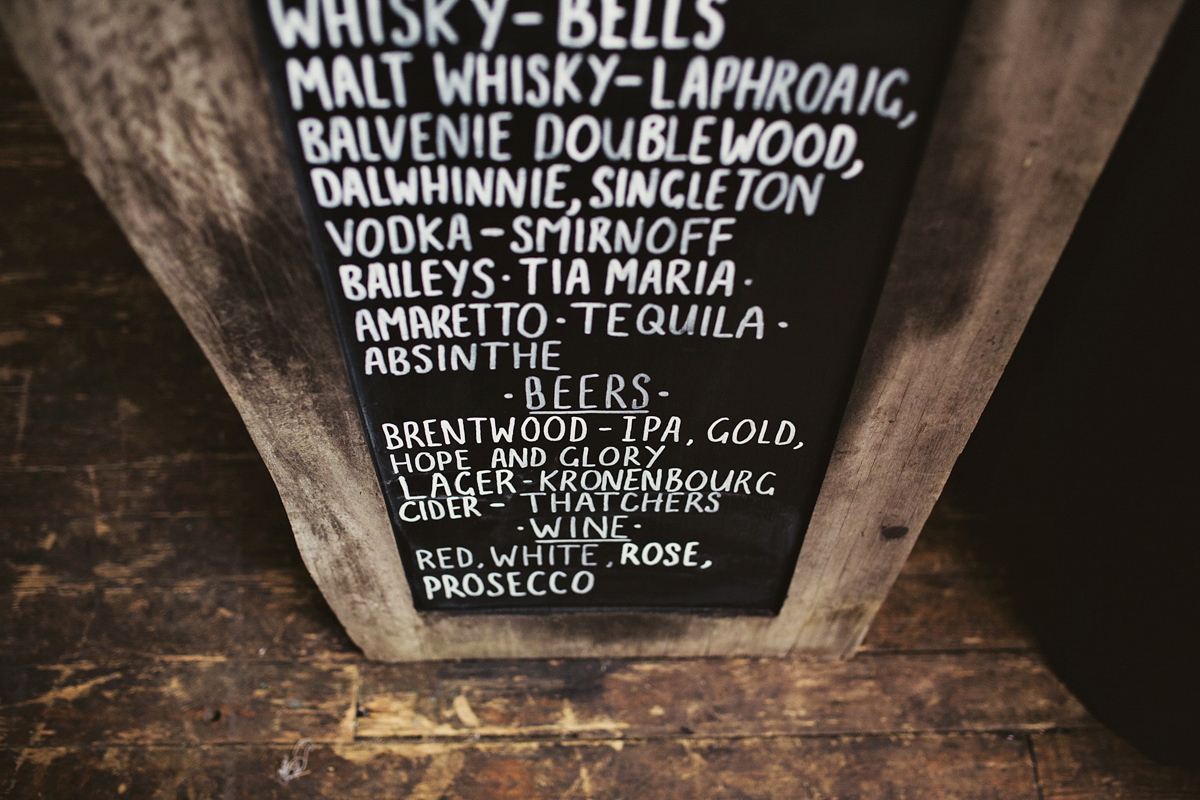 WHISKY-BELLS
MALT WHISKY-LAPHROAIG,
BALVENIE DOUBLEWOOD,
DALWHINNIE, SINGLETON
VODKA-SMIRNOFF
BAILEYS·TIA MARIA·
AMARETTO·TEQUILA·
ABSINTHE
·BEERS·
BRENTWOOD-IPA, GOLD,
HOPE AND GLORY
LAGER-KRONENBOURG
CIDER-THATCHERS
·WINE·
RED, WHITE, ROSE,
PROSECCO